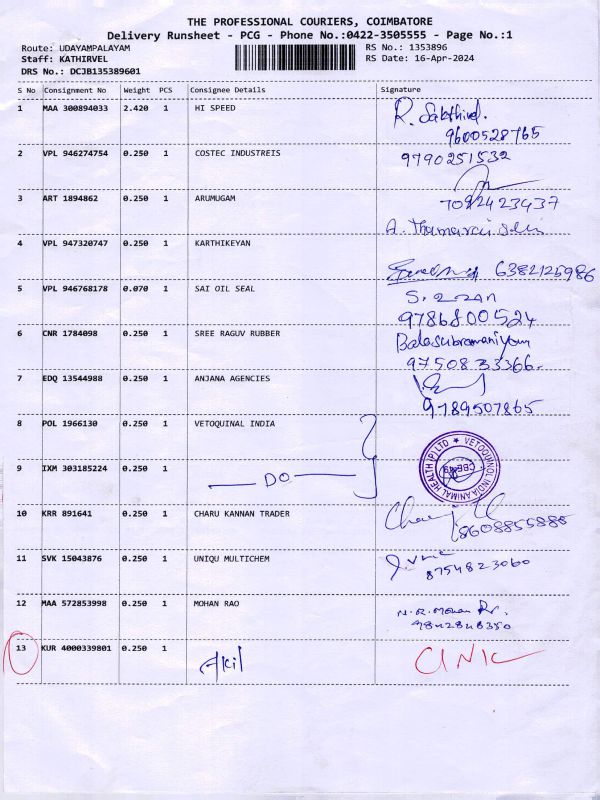 THE PROFESSIONAL COURIERS, COIMBATORE
Delivery Runsheet - PCG - Phone No.:0422-3505555 - Page No.:1
Route: UDAYAMPALAYAM RS No.: 1353896
Staff: KATHIRVEL RS Date: 16-Apr-2024
DRS No.: DCJB135389601
S No Consignment No Weight PCS Consignee Details Signature
1 MAA 300894033 2.420 1 HI SPEED R. Sakthivel.
9600528765
2 VPL 946274754 0.250 1 COSTEC INDUSTREIS 9790251532
3 ART 1894862 0.250 1 ARUMUGAM 7092423437
A. Thamarai Selvi
4 VPL 947320747 0.250 1 KARTHIKEYAN
6382125986
5 VPL 946768178 0.070 1 SAI OIL SEAL
9786800524
6 CNR 1784098 0.250 1 SREE RAGUV RUBBER Balasubramaniyam
9750833366.
7 EDQ 13544988 0.250 1 ANJANA AGENCIES
9789507865
8 POL 1966130 0.250 1 VETOQUINAL INDIA
VETOQUINOL INDIA ANIMAL HEALTH (P) LTD
9 IXM 303185224 0.250 1 DO
10 KRR 891641 0.250 1 CHARU KANNAN TRADER
8608855886
11 SVK 15043876 0.250 1 UNIQU MULTICHEM
8754823060
12 MAA 572853998 0.250 1 MOHAN RAO N.R. Mohan Rr.
9842848350
13 KUR 4000339801 0.250 1 Akil